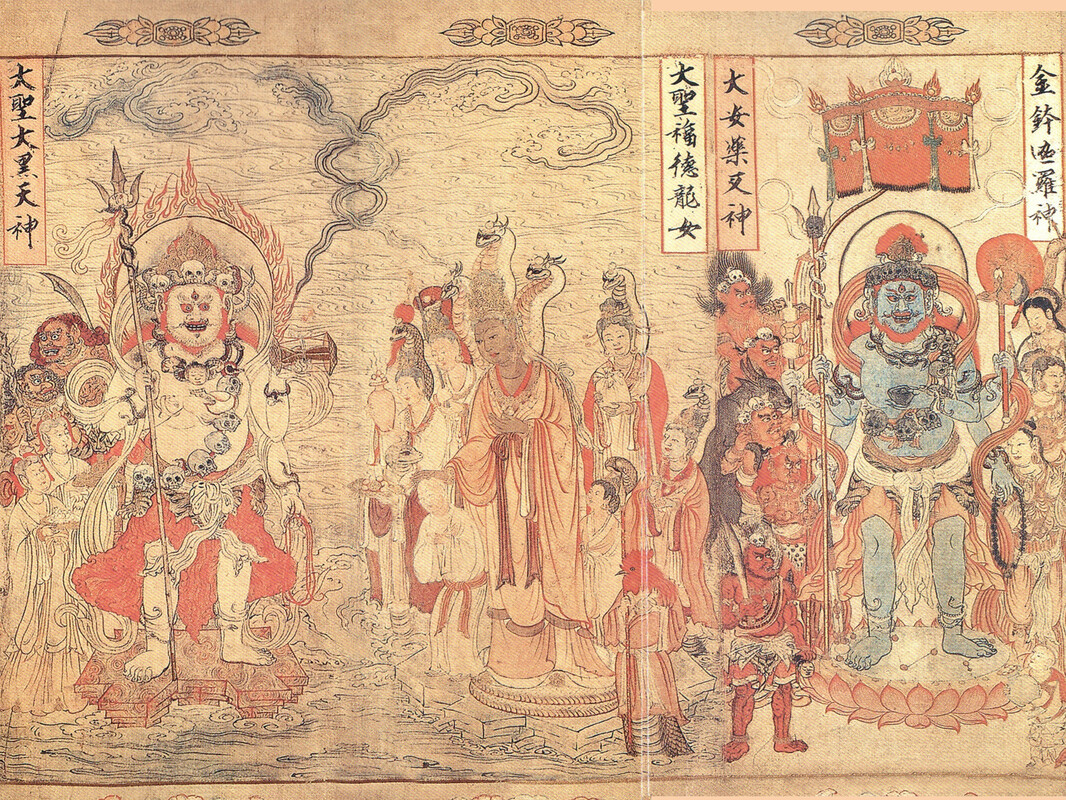 金鉢迦羅神
大安藥叉神
大聖福德龍女
大聖大黑天神